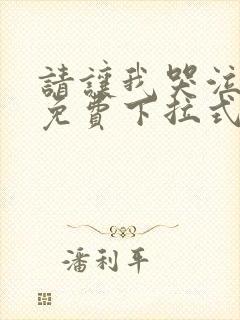 請讓我哭泣
免費下拉式
潘利平